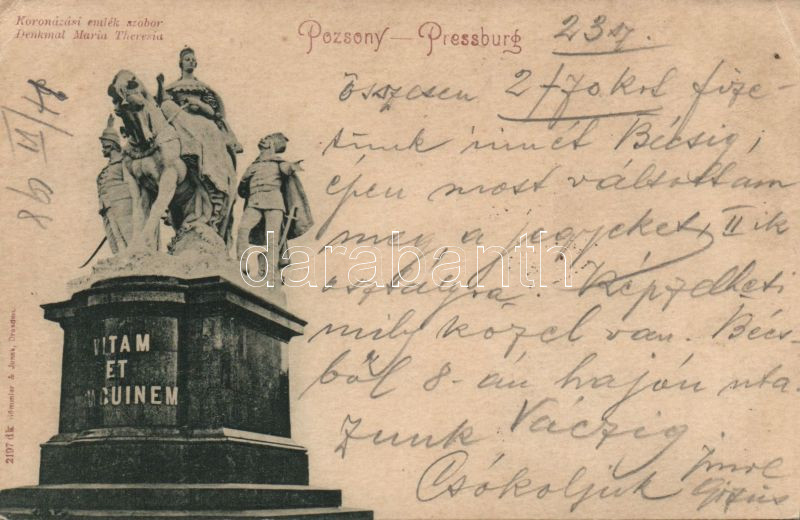 Koronázási emlék szobor
Denkmal Maria Theresia
Pozsony — Pressburg
összesen 2f 70 krt fize-
tünk ismét Bécsig,
épen most váltottam
meg a jegyeket, II ik
osztályra. Képzelheti
mily közel van. Bécs-
ből 8-án hajón uta
zunk Váczig
Csókoljuk Imre
VITAM
ET
NGUINEM
2197 dk Römmler & Jonas, Dresden.
darabanth